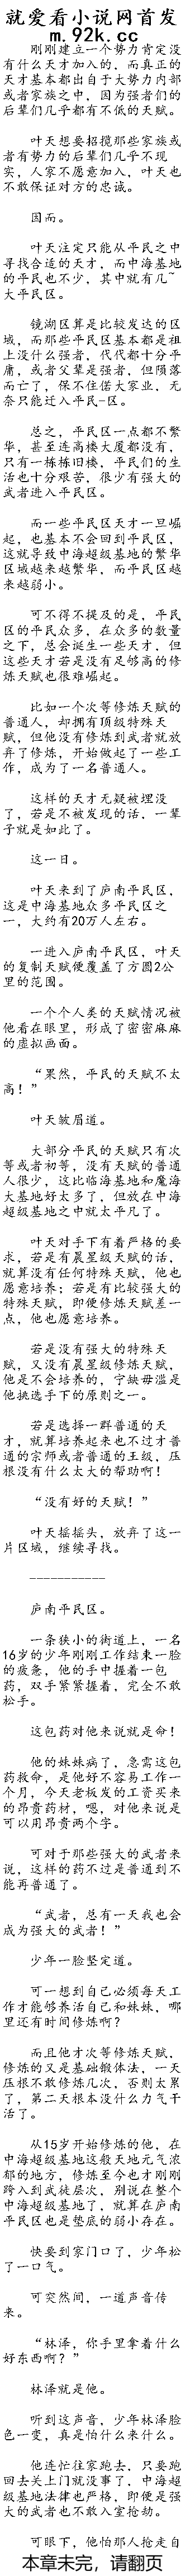 就爱看小说网首发
m.92k.cc
刚刚建立一个势力肯定没
有什么天才加入的，而真正的
天才基本都出自于大势力内部
或者家族之中，因为强者们的
后辈们几乎都有不低的天赋。
叶天想要招揽那些家族或
者有势力的后辈们几乎不现
实，人家不愿意加入，叶天也
不敢保证对方的忠诚。
因而。
叶天注定只能从平民之中
寻找合适的天才，而中海基地
的平民也不少，其中就有几~
大平民区。
镜湖区算是比较发达的区
域，而那些平民区基本都是祖
上没什么强者，代代都十分平
庸，或者父辈是强者，但陨落
而亡了，保不住偌大家业，无
奈只能迁入平民-区。
总之，平民区一点都不繁
华，甚至连高楼大厦都没有，
只有一栋栋旧楼，平民们的生
活也十分艰苦，很少有强大的
武者进入平民区。
而一些平民区天才一旦崛
起，也基本不会回到平民区，
这就导致中海超级基地的繁华
区域越来越繁华，而平民区越
来越弱小。
可不得不提及的是，平民
区的平民众多，在众多的数量
之下，总会诞生一些天才，但
这些天才若是没有足够高的修
炼天赋也很难崛起。
比如一个次等修炼天赋的
普通人，却拥有顶级特殊天
赋，但他没有修炼到武者就放
弃了修炼，开始做起了一些工
作，成为了一名普通人。
这样的天才无疑被埋没
了，若是不被发现的话，一辈
子就是如此了。
这一日。
叶天来到了庐南平民区，
这是中海基地众多平民区之
一，大约有20万人左右。
一进入庐南平民区，叶天
的复制天赋便覆盖了方圆2公
里的范围。
一个个人类的天赋情况被
他看在眼里，形成了密密麻麻
的虚拟画面。
“果然，平民的天赋不太
高！”
叶天皱眉道。
大部分平民的天赋只有次
等或者初等，没有天赋的普通
人很少，这比临海基地和魔海
大基地好太多了，但放在中海
超级基地之中就太平凡了。
叶天对手下有着严格的要
求，若是有晨星级天赋的话，
就算没有任何特殊天赋，他也
愿意培养；若是有比较强大的
特殊天赋，即便修炼天赋差一
点，他也愿意培养。
若是没有强大的特殊天
赋，又没有晨星级修炼天赋，
他是不会培养的，宁缺毋滥是
他挑选手下的原则之一。
若是选择一群普通的天
才，就算培养起来也不过才普
通的宗师或者普通的王级，压
根没有什么太大的帮助啊！
“没有好的天赋！”
叶天摇摇头，放弃了这一
片区域，继续寻找。
------------
庐南平民区。
一条狭小的街道上，一名
16岁的少年刚刚工作结束一脸
的疲惫，他的手中握着一包
药，双手紧紧握着，完全不敢
松手。
这包药对他来说就是命！
他的妹妹病了，急需这包
药救命，是他好不容易工作一
个月，今天老板发的工资买来
的昂贵药材，嗯，对他来说是
可以用昂贵两个字。
可对于那些强大的武者来
说，这样的药不过是普通到不
能再普通了。
“武者，总有一天我也会
成为强大的武者！”
少年一脸坚定道。
可一想到自己必须每天工
作才能够养活自己和妹妹，哪
里还有时间修炼啊？
而且他才次等修炼天赋，
修炼的又是基础锻体法，一天
压根不敢修炼几次，否则太累
了，第二天根本没什么力气干
活了。
从15岁开始修炼的他，在
中海超级基地这般天地元气浓
郁的地方，修炼至今也才刚刚
跨入到武徒层次，别说在整个
中海超级基地了，就算在庐南
平民区也是垫底的弱小存在。
快要到家门口了，少年松
了一口气。
可突然间，一道声音传
来。
“林泽，你手里拿着什么
好东西啊？”
林泽就是他。
听到这声音，少年林泽脸
色一变，真是怕什么来什么。
他连忙往家跑去，只要跑
回去关上门就没事了，中海超
级基地法律也严格，即便是强
大的武者也不敢入室抢劫。
可眼下，他怕那人抢走自
本章未完，请翻页